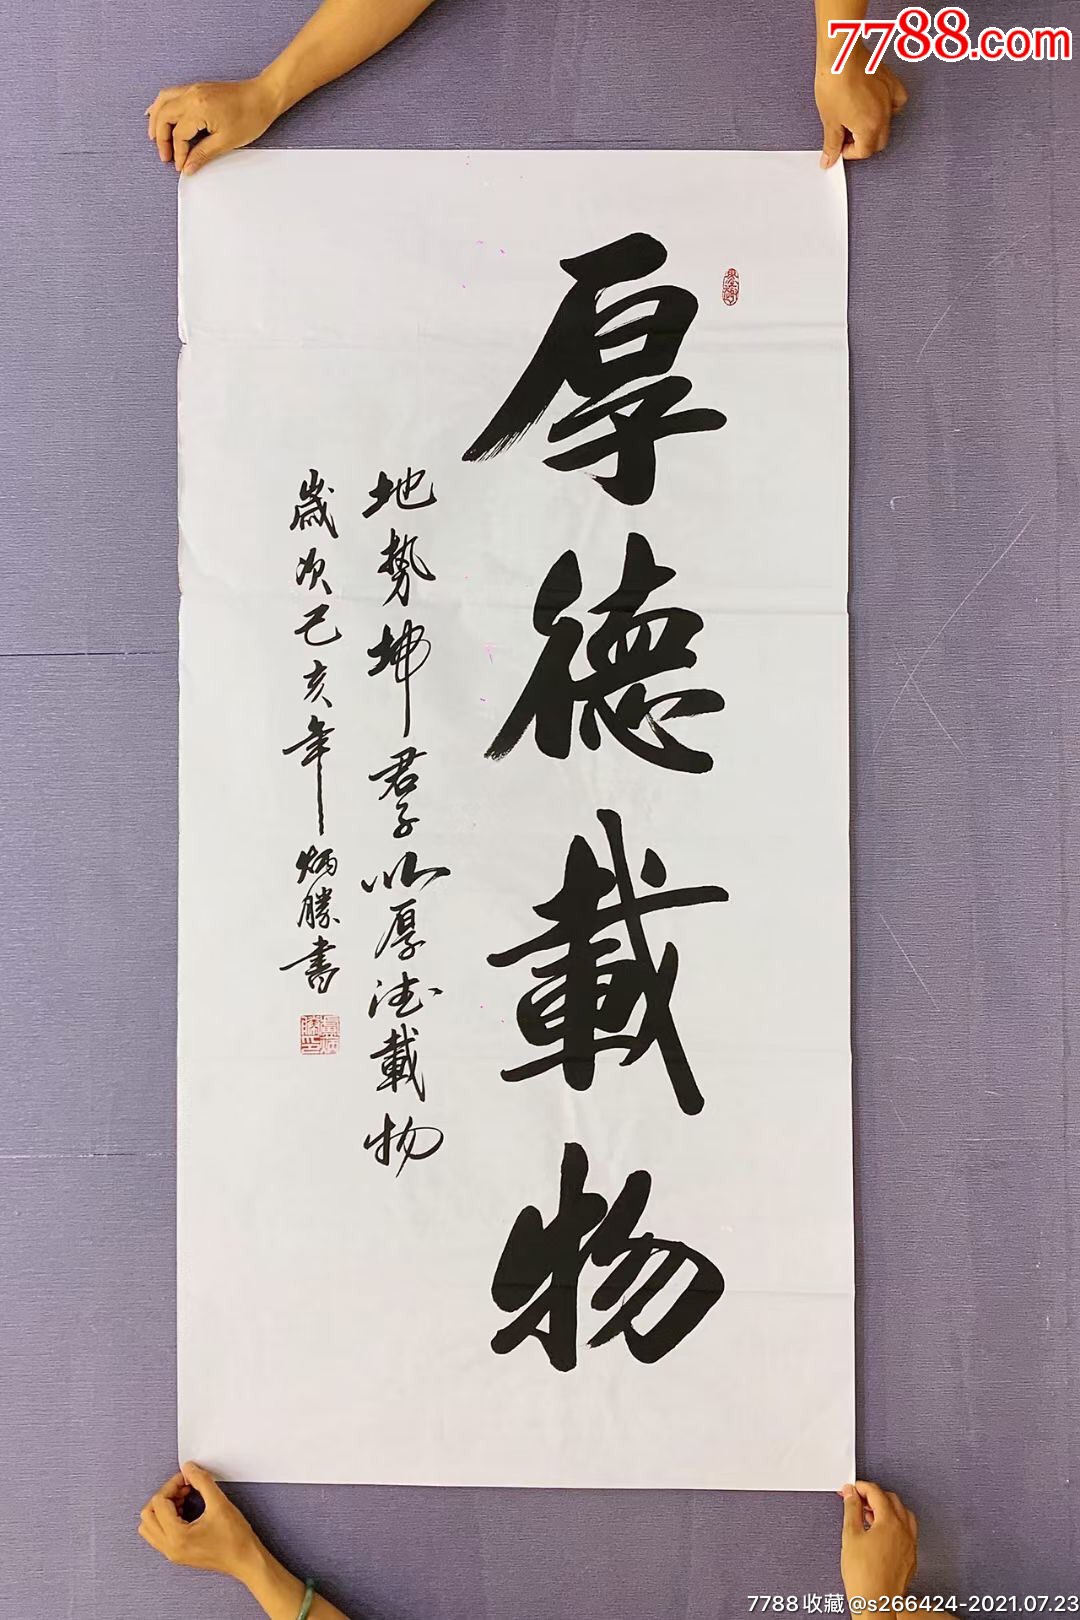 7788.com
厚德載物
地勢坤君子以厚德載物
歲次己亥年炳勝書
7788收藏@s266424-2021.07.23